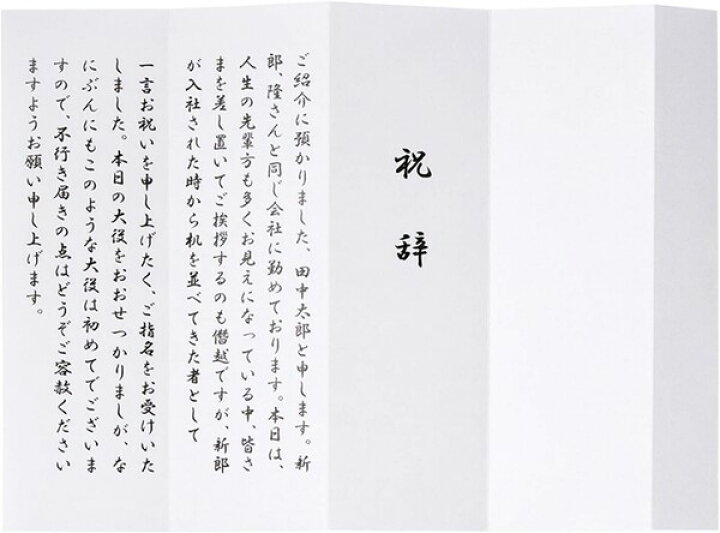 祝辞
ご紹介に預かりました、田中太郎と申します。新
郎、隆さんと同じ会社に勤めております。本日は、
人生の先輩方も多くお見えになっている中、皆さ
まを差し置いてご挨拶するのも僭越ですが、新郎
が入社された時から机を並べてきた者として
一言お祝いを申し上げたく、ご指名をお受けいた
しました。本日の大役をおおせつかりましが、な
にぶんにもこのような大役は初めてでございま
すので、不行き届きの点はどうぞご容赦ください
ますようお願い申し上げます。